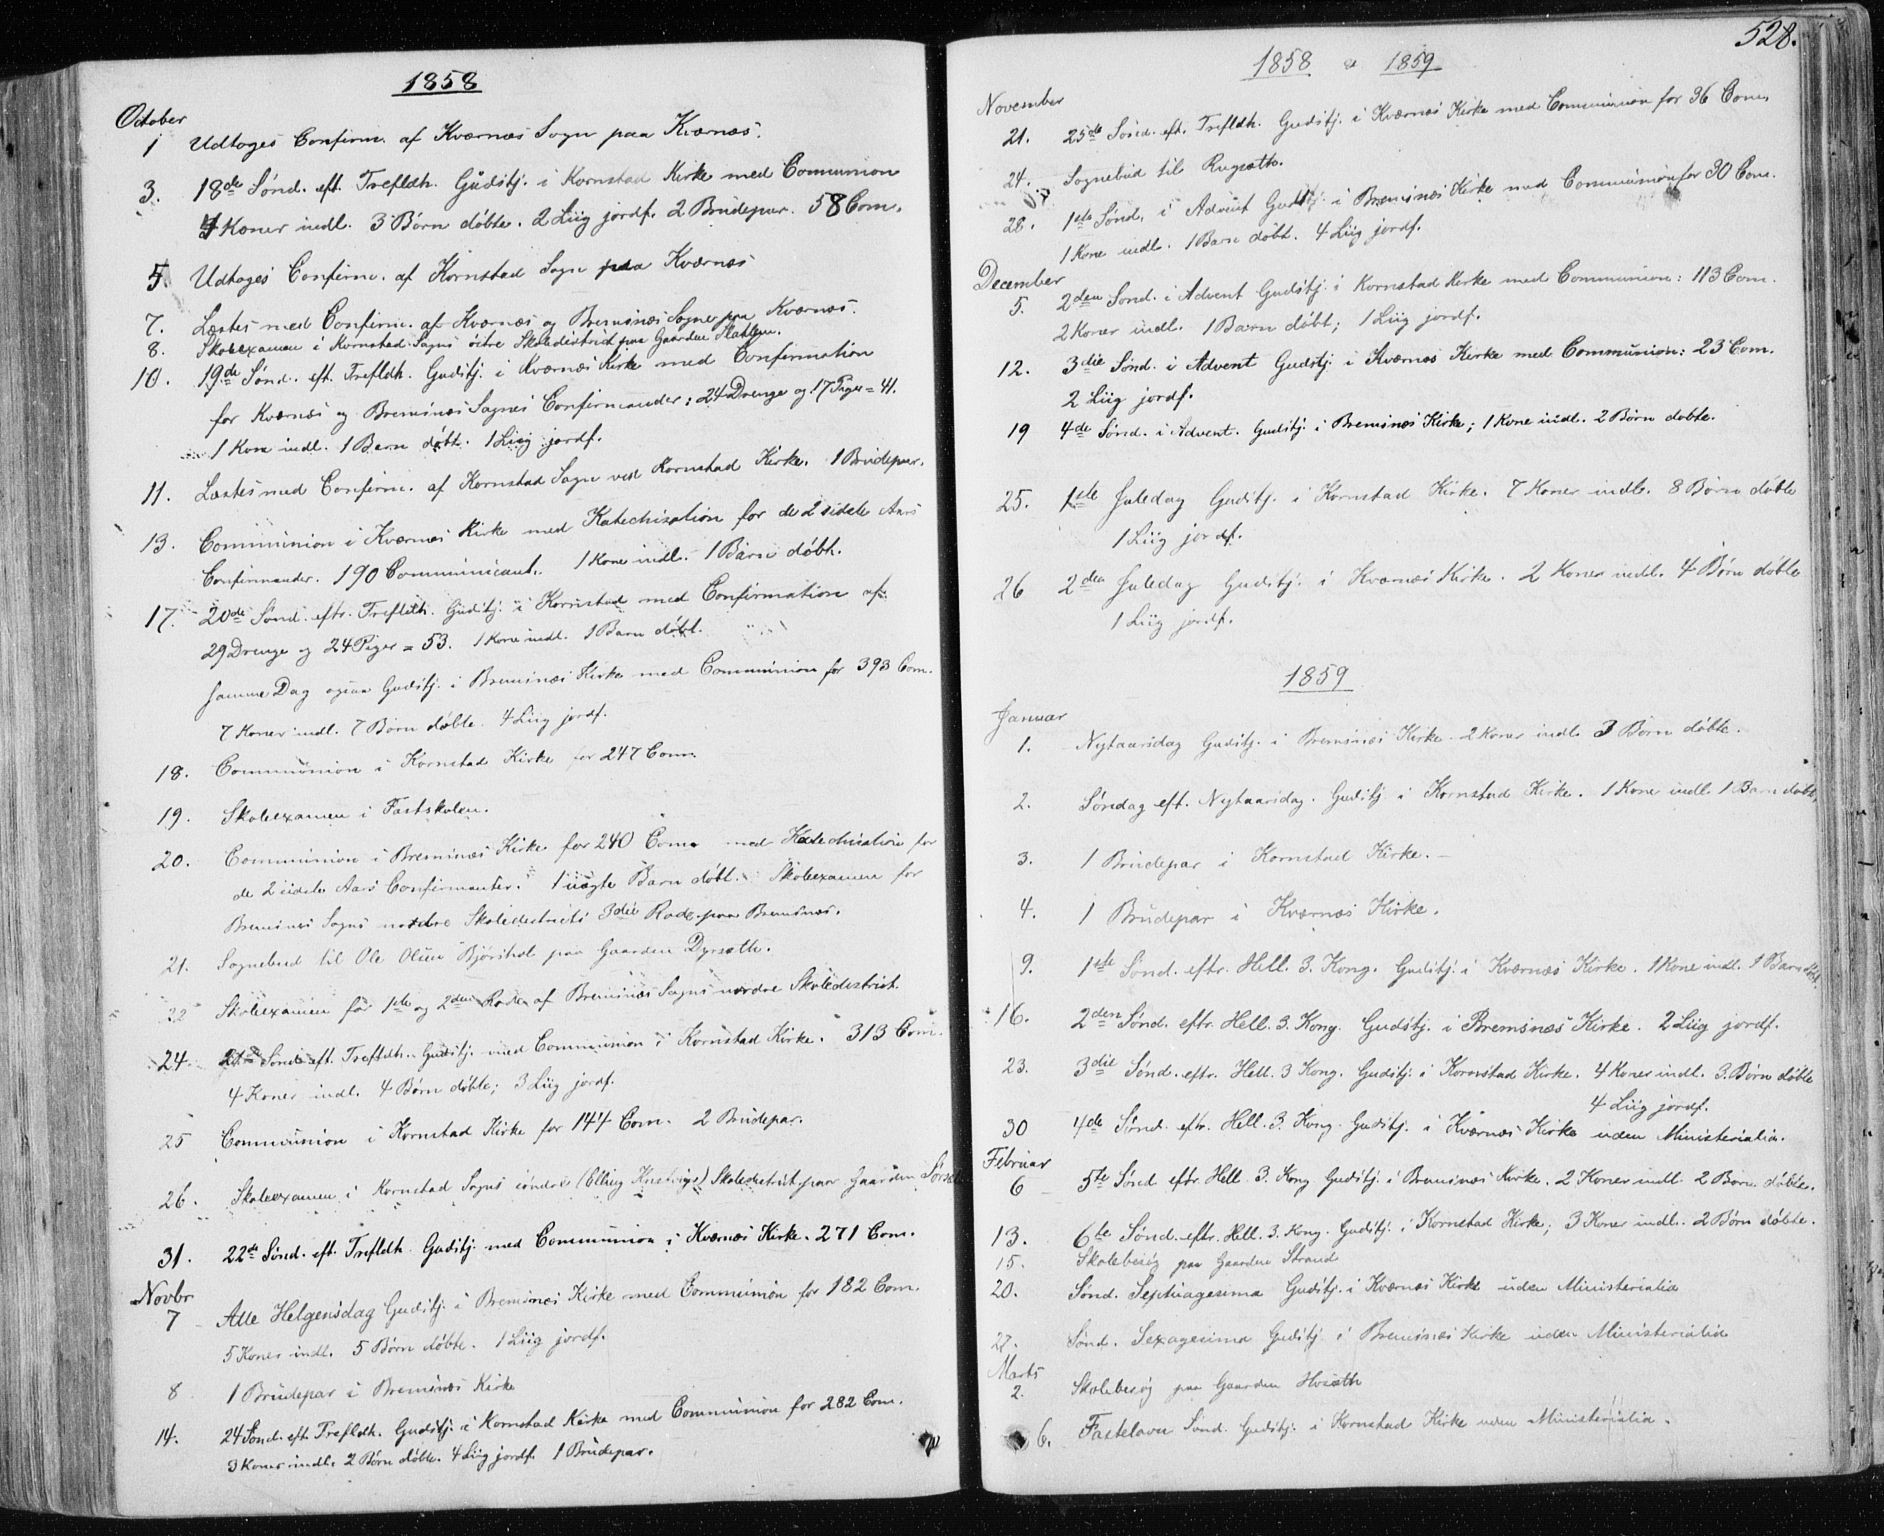 1858
October
1 Udtoges Confirm. af Kværnæs Sogn paa Kværnæs.
3. 18de Sønd. eft. Trefldh. Gudstj. i Kornstad Kirke med Communion
4 Koner indl. 3 Børn døbte. 2 Liig jordf. 2 Brudepar. 58 Com.
5. Udtoges Confirm. af Kornstad Sogn paa Kværnæs
7. Læstes med Confirm. af Kværnæs og Bremsnæs Sogne paa Kværnæs.
8. Skoleexamen i Kornstad Sogns østre Skoledistrict paa Gaarden
10. 19de Sønd. eft. Trefldh. Gudstj. i Kværnæs Kirke med Confirmation
for Kværnæs og Bremsnæs Sognes Confirmander: 24 Drenge og 17 Piger = 41.
1 Kone indl. 1 Barn døbt. 1 Liig jordf.
11. Læstes med Confirm. af Kornstad Sogn ved Kornstad Kirke. 1 Brudepar.
13. Communion i Kværnæs Kirke med Katechisation for de 2 sidste Aars
Confirmander. 190 Communicant. 1 Kone indl. 1 Barn døbt.
17. 20de Sønd. eftr. Trefldh. Gudstj. i Kornstad med Confirmation af
29 Drenge og 24 Piger = 53. 1 Kone indl. 1 Barn døbt.
Samme Dag ogsaa Gudstj. i Bremsnæs Kirke med Communion for 393 Com.
7 Koner indl. 7 Børn døbte. 4 Liig jordf.
18. Communion i Kornstad Kirke for 247 Com.
19. Skoleexamen i Fastskolen.
20. Communion i Bremsnæs Kirke for 240 Com. med Katechisation for
de 2 sidste Aars Confirmanter. 1 uægte Barn døbt. Skoleexamen for
Bremsnes Sogns nordre Skoledistricts 3die Rode paa Bremsnæs.
21. Sognebud til Ole Olsen paa Gaarden Dyrsæth.
22 Skoleexamen for 1ste og 2den Rode af Bremsnæs Sogns nordre Skoledistrict.
24. 21de Sønd. eft. Trefldh. Gudstj. med Communion i Kornstad Kirke. 313 Com.
4 Koner indl. 4 Børn døbte; 3 Liig jordf.
25 Communion i Kornstad Kirke for 144 Com. 2 Brudepar.
26. Skoleexamen i Kornstad Sogns søndre Skoledistrict paa Gaarden
31. 22de Sønd. eft. Trefldh. Gudstj. med Communion i Kværnæs Kirke. 271 Com.
Novbr
7 Alle Helgensdag Gudstj. i Bremsnæs Kirke med Communion for 182 Com.
5 Koner indl. 5 Børn døbte. 1 Liig jordf.
8 1 Brudepar i Bremsnæs Kirke
14. 24 Sønd. eft. Trefldh. Gudstj. i Kornstad Kirke med Communion for 282 Com.
3 Koner indl. 2 Børn døbte. 4 Liig jordf. 1 Brudepar.
528.
1858 & 1859
November
21. 25de Sønd. eft. Trefldh. Gudstj. i Kværnæs Kirke med Communion for 36 Com.
24. Sognebud til Rugsæth.
28. 1ste Sønd. i Advent Gudstj. i Bremsnæs Kirke med Communion for 30 Com.
1 Kone indl. 1 Barn døbt. 4 Liig jordf.
December
5. 2den Sønd. i Advent Gudstj. i Kornstad Kirke med Communion: 113 Com.
2 Koner indl. 1 Barn døbt; 1 Liig jordf.
12. 3die Sønd. i Advent Gudstj. i Kværnæs Kirke med Communion: 23 Com.
2 Liig jordf.
19 4de Sønd. i Advent. Gudstj. i Bremsnæs Kirke; 1 Kone indl. 2 Børn døbte.
25. 1ste Juledag Gudstj. i Kornstad Kirke. 7 Koner indl. 8 Børn døbte
1 Liig jordf.
26 2den Juledag Gudstj. i Kværnæs Kirke. 2 Koner indl. 4 Børn døbte
1 Liig jordf.
1859
Januar
1. Nytaarsdag Gudstj. i Bremsnæs Kirke 2 Koner indl. 3 Børn døbte.
2. Søndag eft. Nytaarsdag. Gudstj. i Kornstad Kirke. 1 Kone indl. 1 Barn døbt.
3. 1 Brudepar i Kornstad Kirke.
4. 1 Brudepar i Kværnæs Kirke.
9. 1ste Sønd. eftr. Hell. 3. Kong. Gudstj. i Kværnæs Kirke. 1 Kone indl. 1 Barn døbt.
16. 2den Sønd. eftr. Hell. 3. Kong. Gudstj. i Bremsnæs Kirke. 2 Liig jordf.
23. 3die Sønd. eftr. Hell. 3 Kong. Gudstj. i Kornstad Kirke. 4 Koner indl. 3. Børn døbte
4 Liig jordf.
30 4de Sønd. eftr. Hell. 3. Kong. Gudstj. i Kværnæs Kirke uden Ministerialia.
Februar
6 5te Sønd eftr. Hell. 3. Kong. Gudstj. i Bremsnæs Kirke. 2 Koner indl. 2 Børn døbte.
13. 6te Sønd. eftr. Hell. 3. Kong. Gudstj. i Kornstad Kirke; 3 Koner indl. 2 Børn døbte.
15. Skolebesøg paa Gaarden Strand
20. Sønd. Septuagesima Gudstj. i Kværnæs Kirke uden Ministerialia
27. Sønd. Sexagesima Gudstj. i Bremsnæs Kirke uden Ministerialia
Marts
2. Skolebesøg paa Gaarden
6. Fastelavn Sønd. Gudstj. i Kornstad Kirke uden Ministerialia.